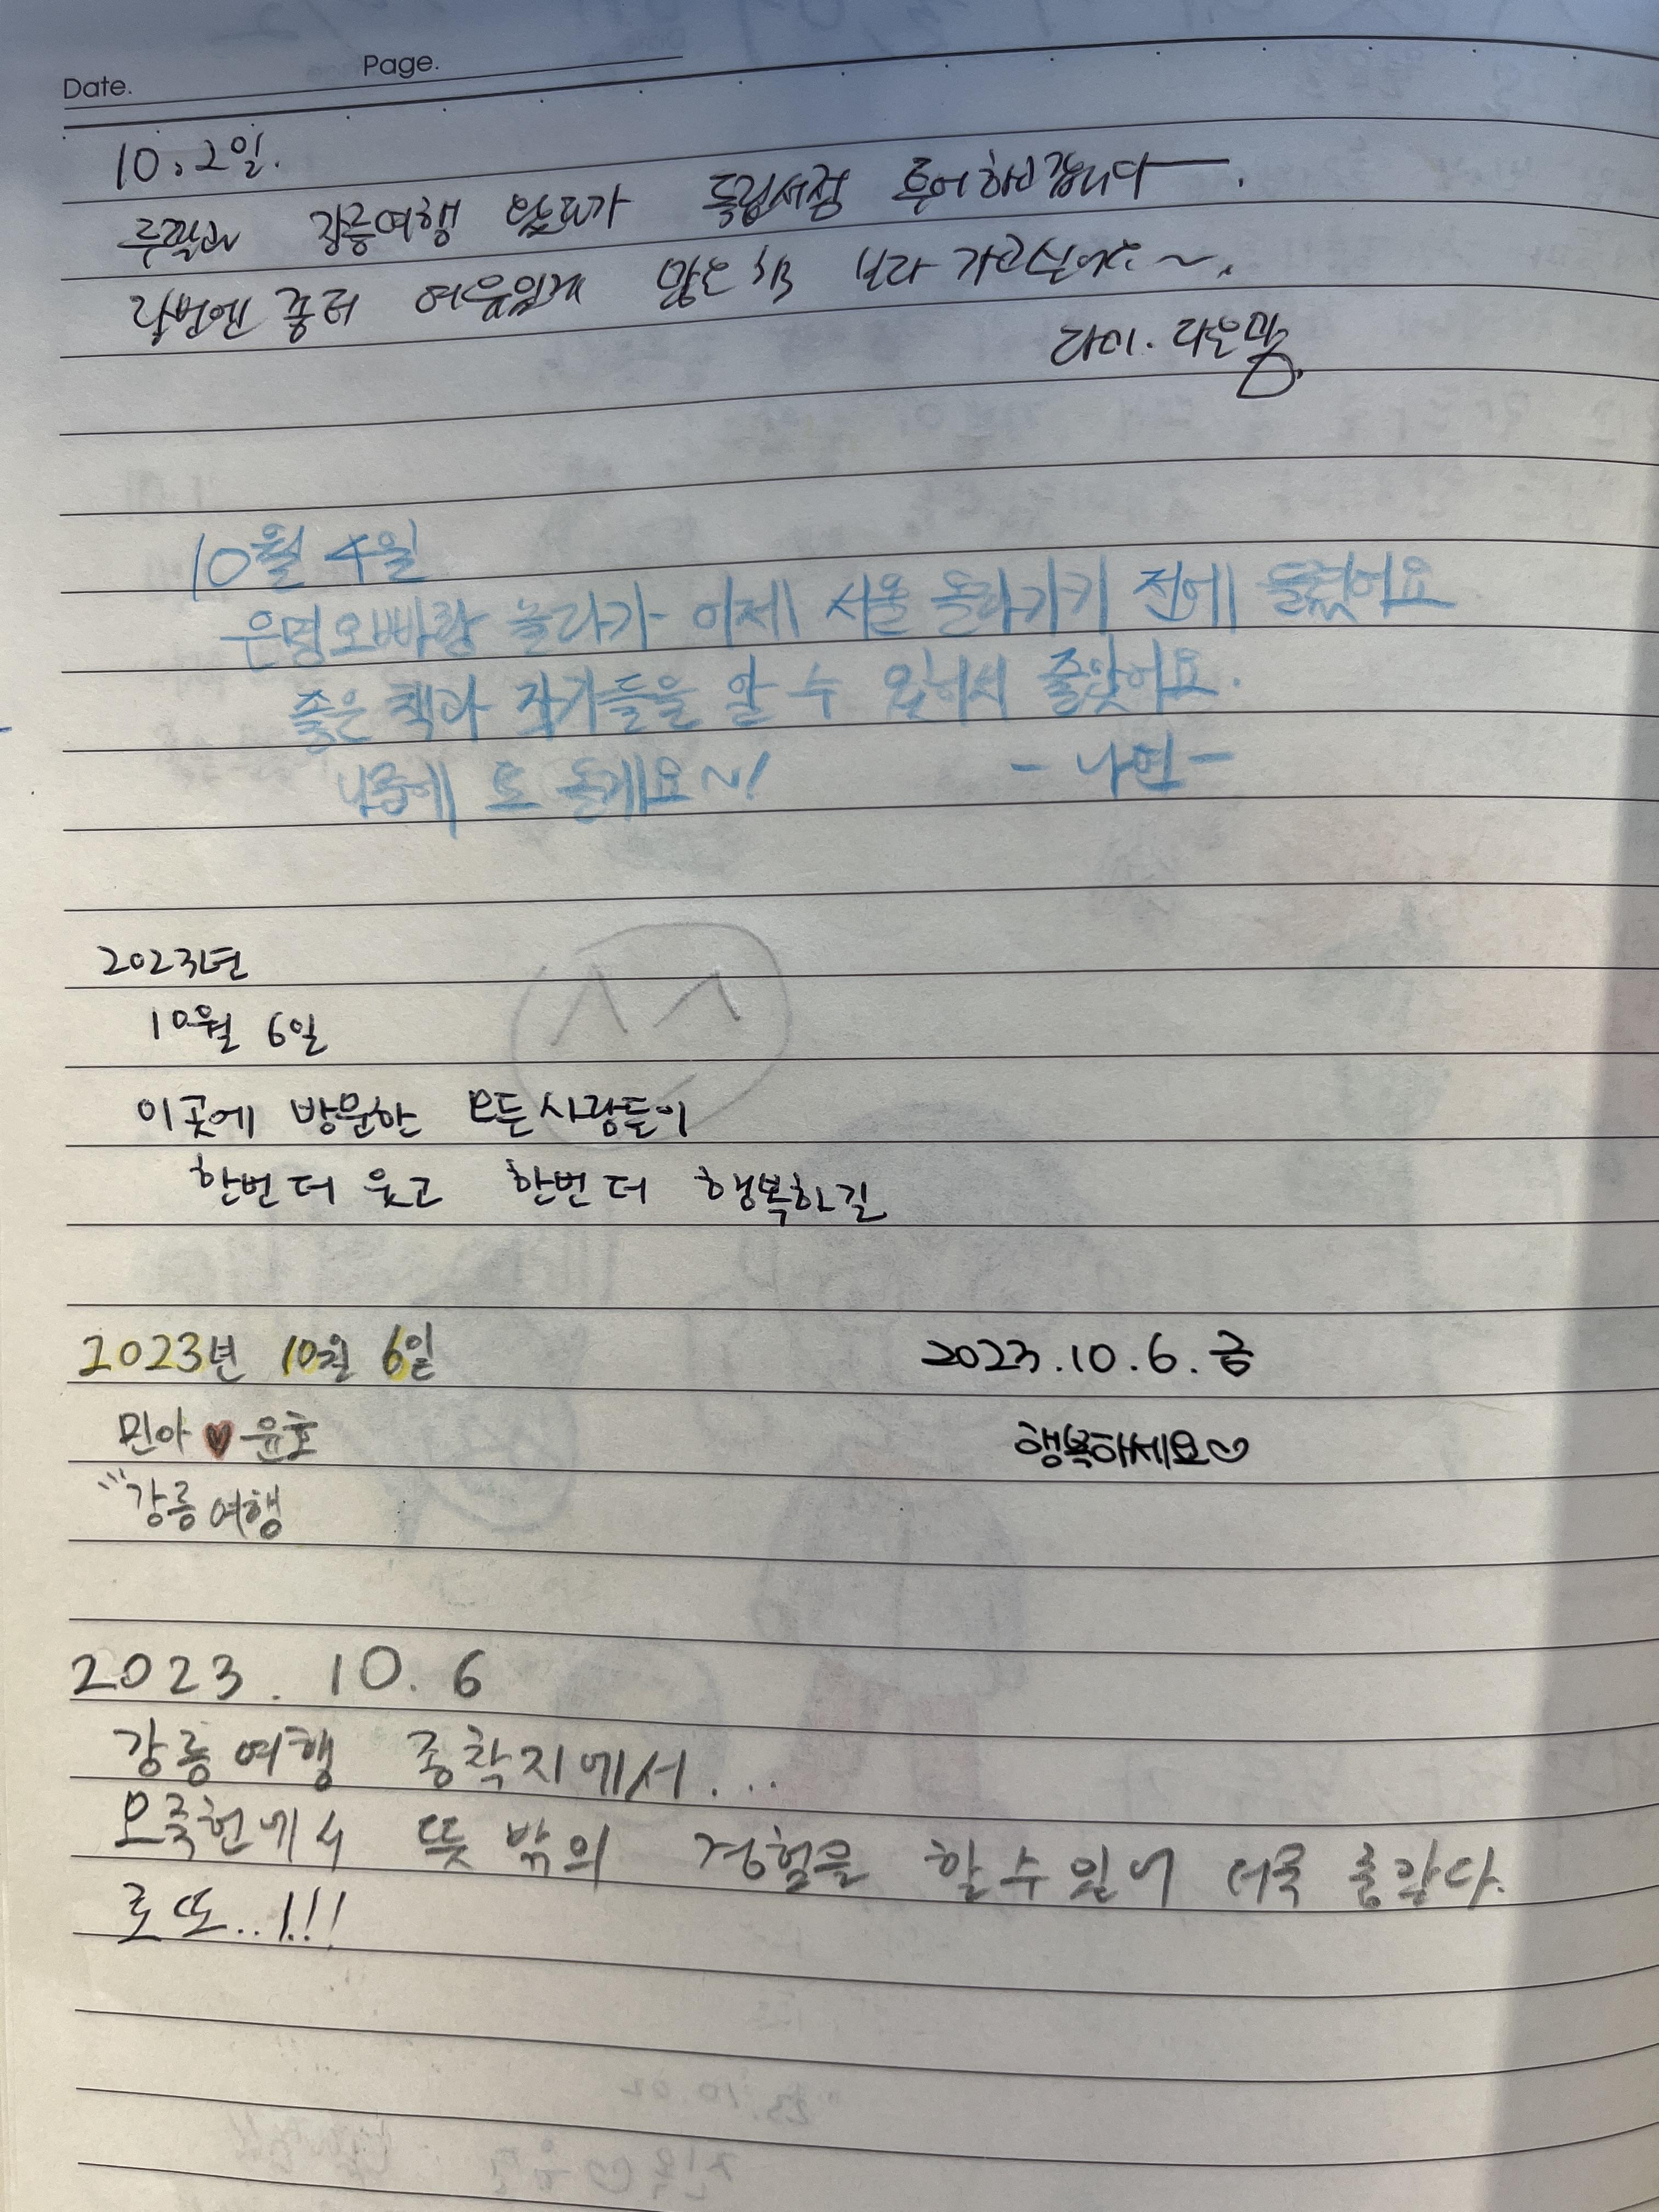 Date. Page.
10. 2일.
두딸과 강릉여행 왔다가 독립서점 투어하고갑니다.
다음번엔 좀더 여유있게 많은 책 보다 가고싶어요~.
다은맘
10월 4일
은명오빠랑 놀다가 이제 서울 올라가기 전에 들렀어요
좋은 책과 작가들을 알 수 있어서 좋았어요.
나중에 또 올게요~!
- 나연 -
2023년
10월 6일
이곳에 방문한 모든 사람들이
한번 더 웃고 한번 더 행복하길
2023년 10월 6일
민아 ♥ 윤호
강릉 여행
2023.10.6.금
행복하세요♡
2023. 10. 6
강릉 여행 종착지에서....
오죽헌에서 뜻밖의 경험을 할 수 있어 더욱 좋았다.
로또..!!!